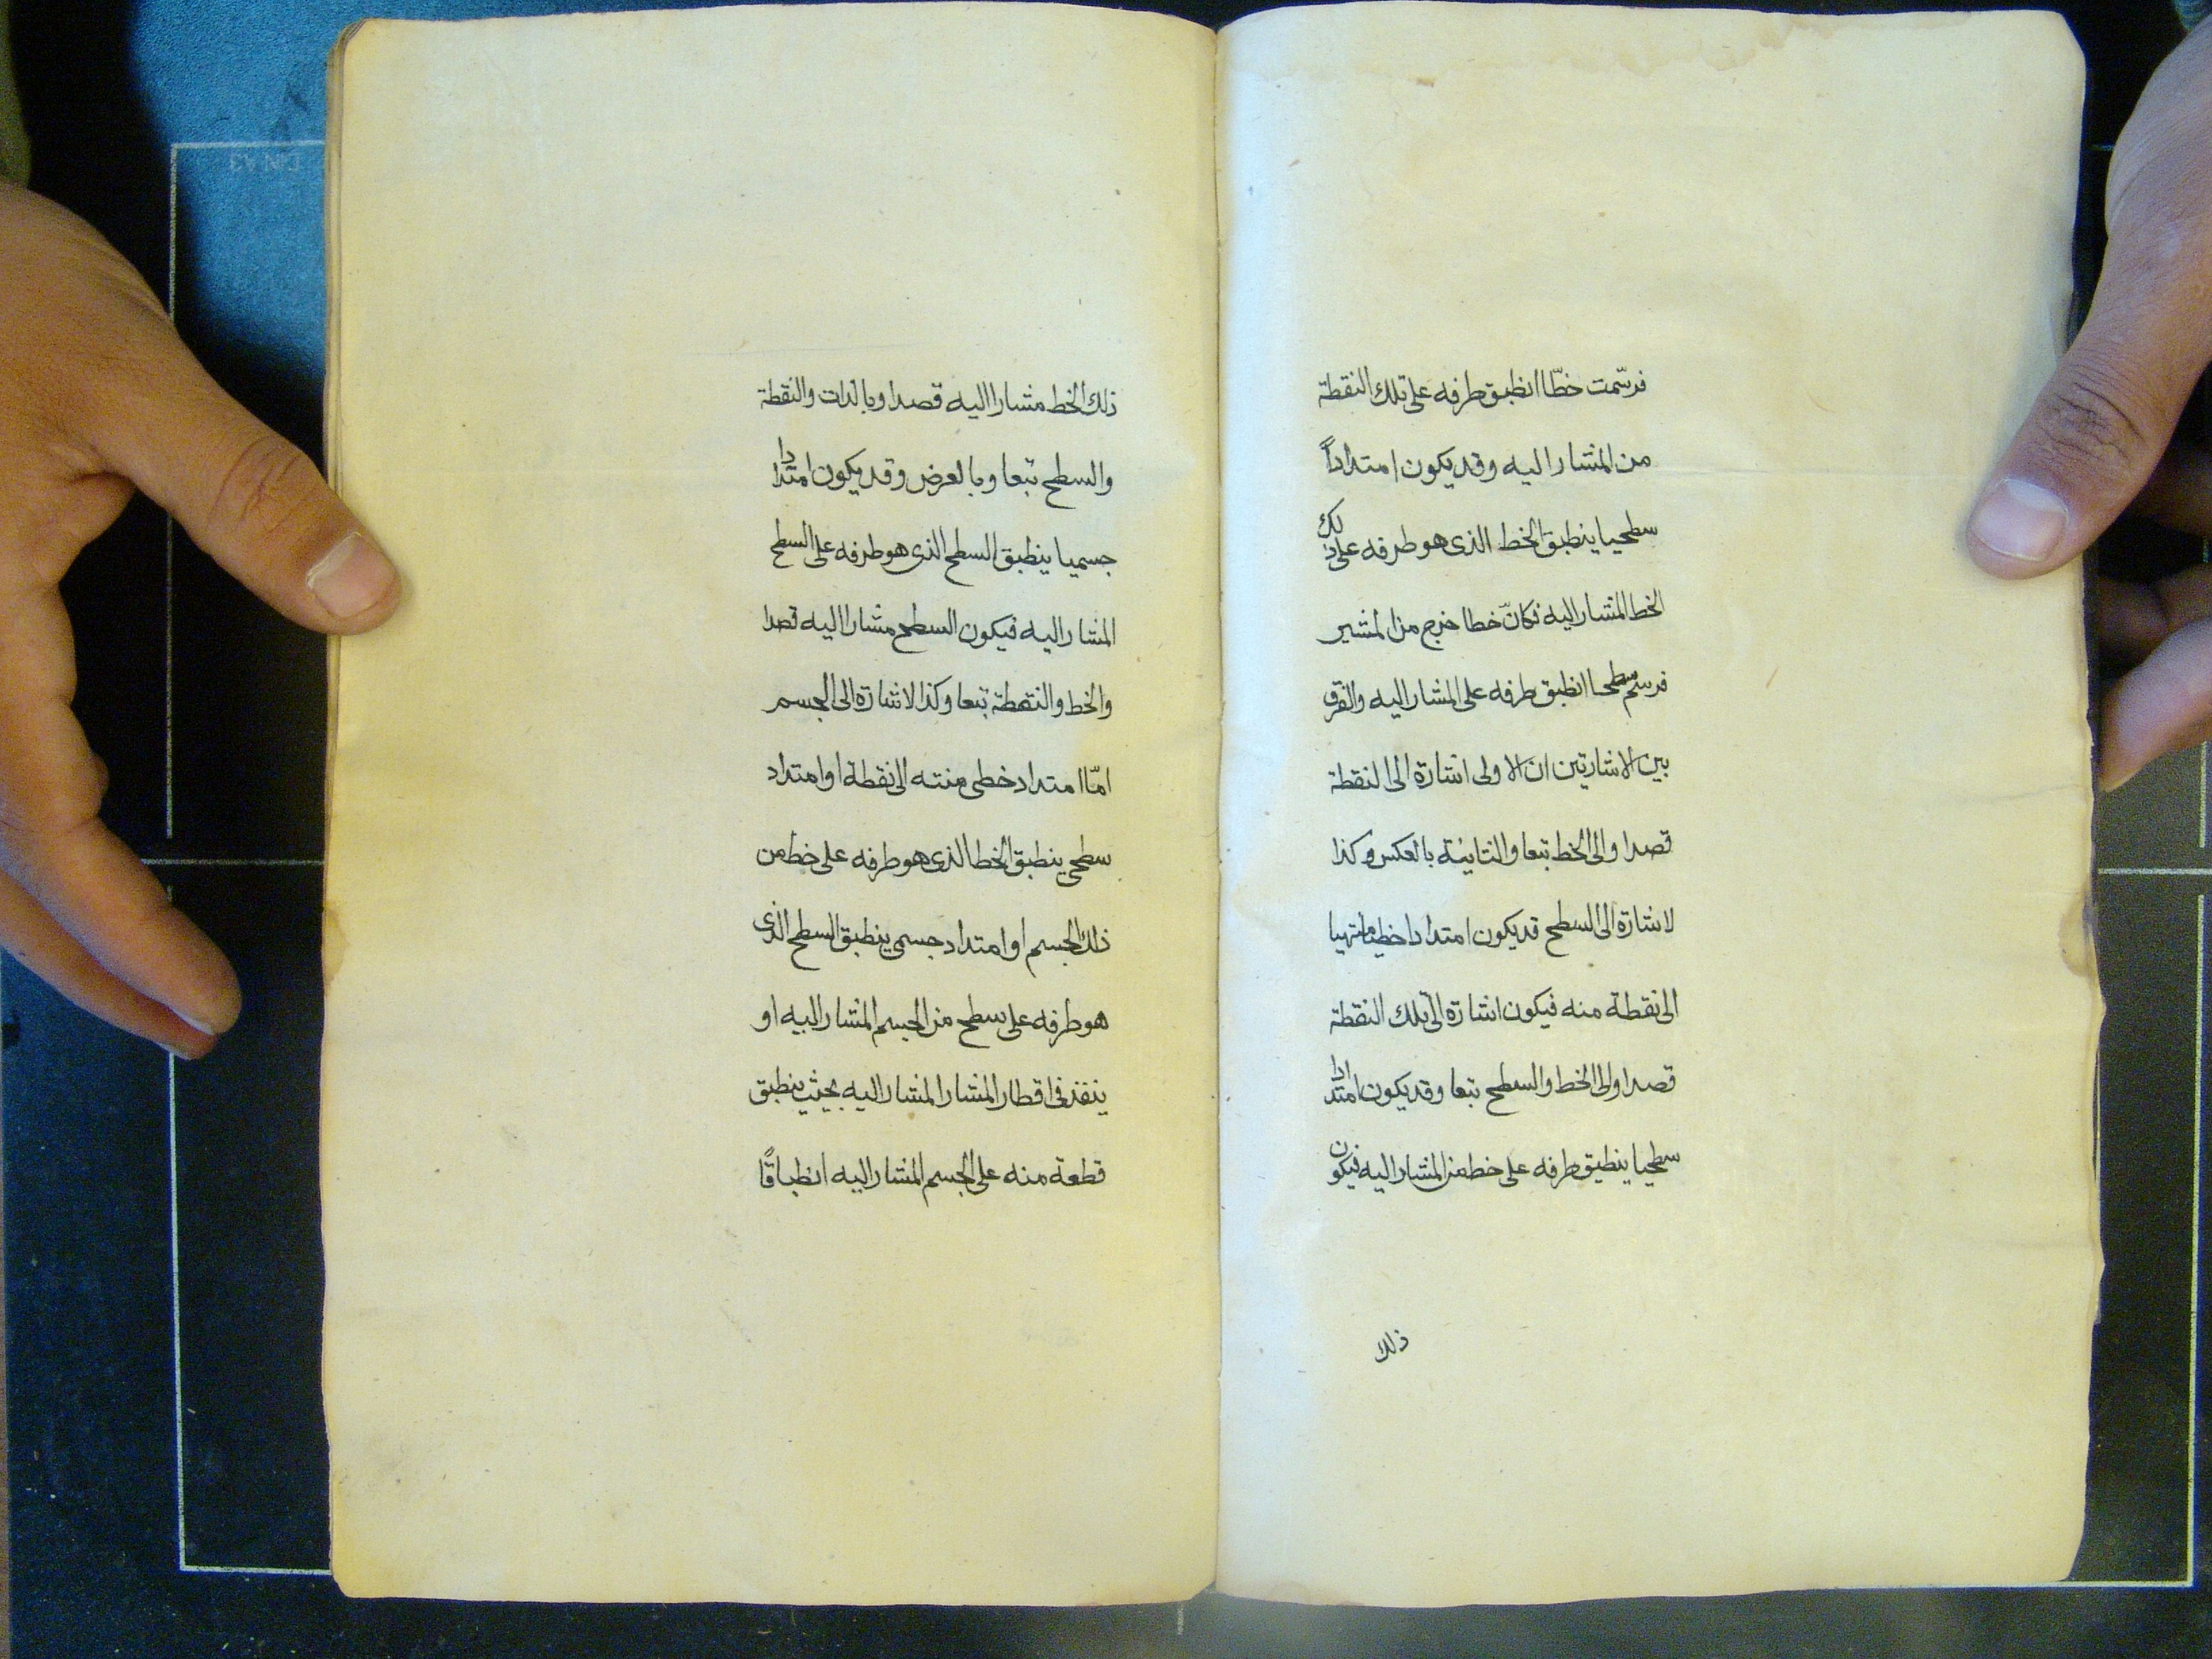 فرسّمت خطّا انطبق طرفه على تلك النقطة
من المشار اليه وقد يكون امتداداً
سطحيا ينطبق الخط الذى هو طرفه على ذلك
الخط المشار اليه فكانّ خطا خرج من المشير
فرسم سطحا انطبق طرفه على المشار اليه والفرق
بين الاشارتين ان الاولى اشارة الى النقطة
قصدا والى الخط تبعا والثانية بالعكس وكذا
لاشارة الى السطح قد يكون امتدادا خطيا منتهيا
الى نقطة منه فيكون اشارة الى تلك النقطة
قصدا والى الخط والسطح تبعا وقد يكون امتدادا
سطحيا ينطبق طرفه على خط من المشار اليه فيكون
ذلك
ذلك الخط مشارا اليه قصدا وبالذات والنقطة
والسطح تبعا وبالعرض وقد يكون امتدادا
جسميا ينطبق السطح الذى هو طرفه على السطح
المشار اليه فيكون السطح مشارا اليه قصدا
والخط والنقطة تبعا وكذا لاشارة الى الجسم
امّا امتداد خطى منته الى نقطة او امتداد
سطحى ينطبق الخط الذى هو طرفه على خط من
ذلك الجسم او امتداد جسمى ينطبق السطح الذى
هو طرفه على سطح من الجسم المشار اليه او
ينفذ فى اقطار المشار المشار اليه بحيث ينطبق
قطعة منه على الجسم المشار اليه انطباقًا